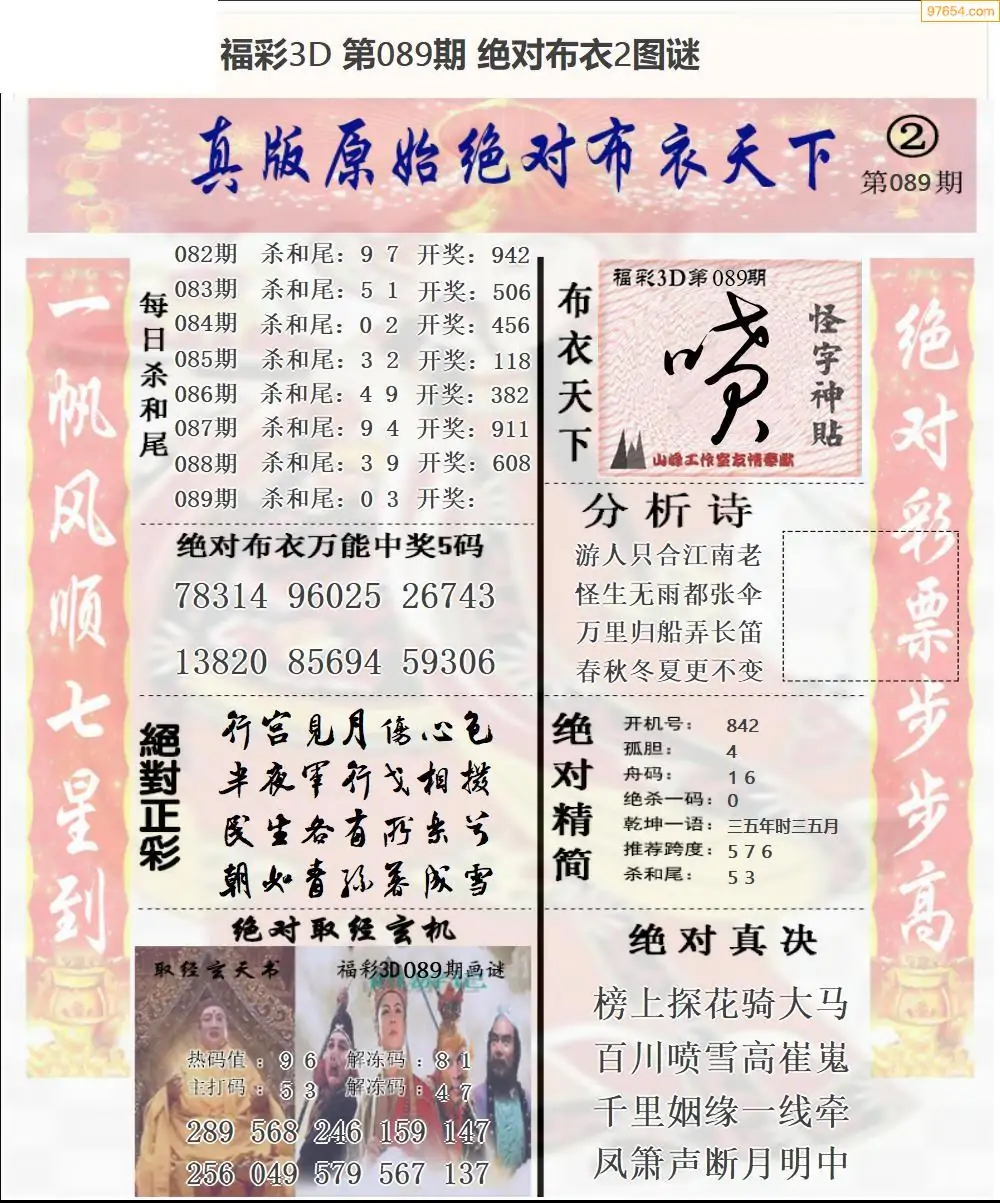 97654.com
福彩3D 第089期 绝对布衣2图谜
真版原始绝对布衣天下
②
第089期
一帆风顺七星到
每日杀和尾
082期 杀和尾：9 7 开奖：942
083期 杀和尾：5 1 开奖：506
084期 杀和尾：0 2 开奖：456
085期 杀和尾：3 2 开奖：118
086期 杀和尾：4 9 开奖：382
087期 杀和尾：9 4 开奖：911
088期 杀和尾：3 9 开奖：608
089期 杀和尾：0 3 开奖：
绝对布衣万能中奖5码
78314 96025 26743
13820 85694 59306
絕對正彩
行宫見月傷心色
半夜軍行戈相撥
民生各有所乐兮
朝如青丝暮成雪
绝对取经玄机
取经玄天书
福彩3D089期画谜
热码值：9 6 解冻码：8 1
主打码：5 3 解冻码：4 7
289 568 246 159 147
256 049 579 567 137
布衣天下
福彩3D第089期
喷
怪字神貼
山峰工作室友情奉献
分析诗
游人只合江南老
怪生无雨都张伞
万里归船弄长笛
春秋冬夏更不变
绝对精简
开机号： 842
孤胆： 4
舟码： 1 6
绝杀一码： 0
乾坤一语： 三五年时三五月
推荐跨度： 5 7 6
杀和尾： 5 3
绝对真决
榜上探花骑大马
百川喷雪高崔嵬
千里姻缘一线牵
凤箫声断月明中
绝对彩票步步高